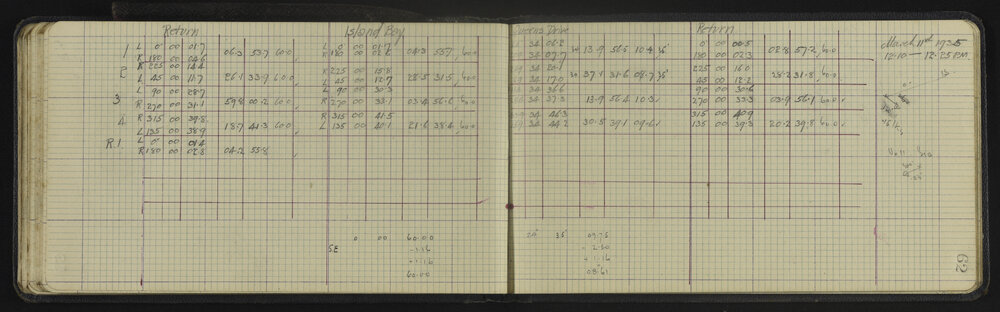 Return Island Bay Queens Drive Return March 11th 1935
12.10 — 12.25 P.M.
1 L 0° 00 01.7 06.3 53.7 60.0 L 0 00 01.7 04.3 55.7 60.0 34 06.2 13.9 56.5 10.4 0 00 00.5 02.8 57.2 60.0
R 180 00 04.6 R 180 00 02.6 34 07.7 180 00 02.3
2 R 225 00 14.4 26.1 33.9 60.0 R 225 00 15.8 28.5 31.5 60.0 34 20.1 37.1 31.6 08.7 225 00 16.0 28.2 31.8 60.0
L 45 00 11.7 L 45 00 12.7 34 17.0 45 00 12.2
3 L 90 00 28.7 59.8 00.2 60.0 L 90 00 30.3 03.4 56.6 60.0 34 36.6 13.9 56.4 10.3 90 00 30.6 03.9 56.1 60.0
R 270 00 31.1 R 270 00 33.1 34 37.3 270 00 33.3
4 R 315 00 39.8 18.7 41.3 60.0 R 315 00 41.5 21.6 38.4 60.0 34 46.3 30.5 39.1 09.6 315 00 40.9 20.2 39.8 60.0
L 135 00 38.9 L 135 00 40.1 34 44.2 135 00 39.3
R.1. L 0° 00 01.4 04.2 55.8
R 180 00 02.8
0 00 60.00 24 35 09.75
S.E -1.16 - 2.30
+1.16 + 1.16
60.00 08.61
62